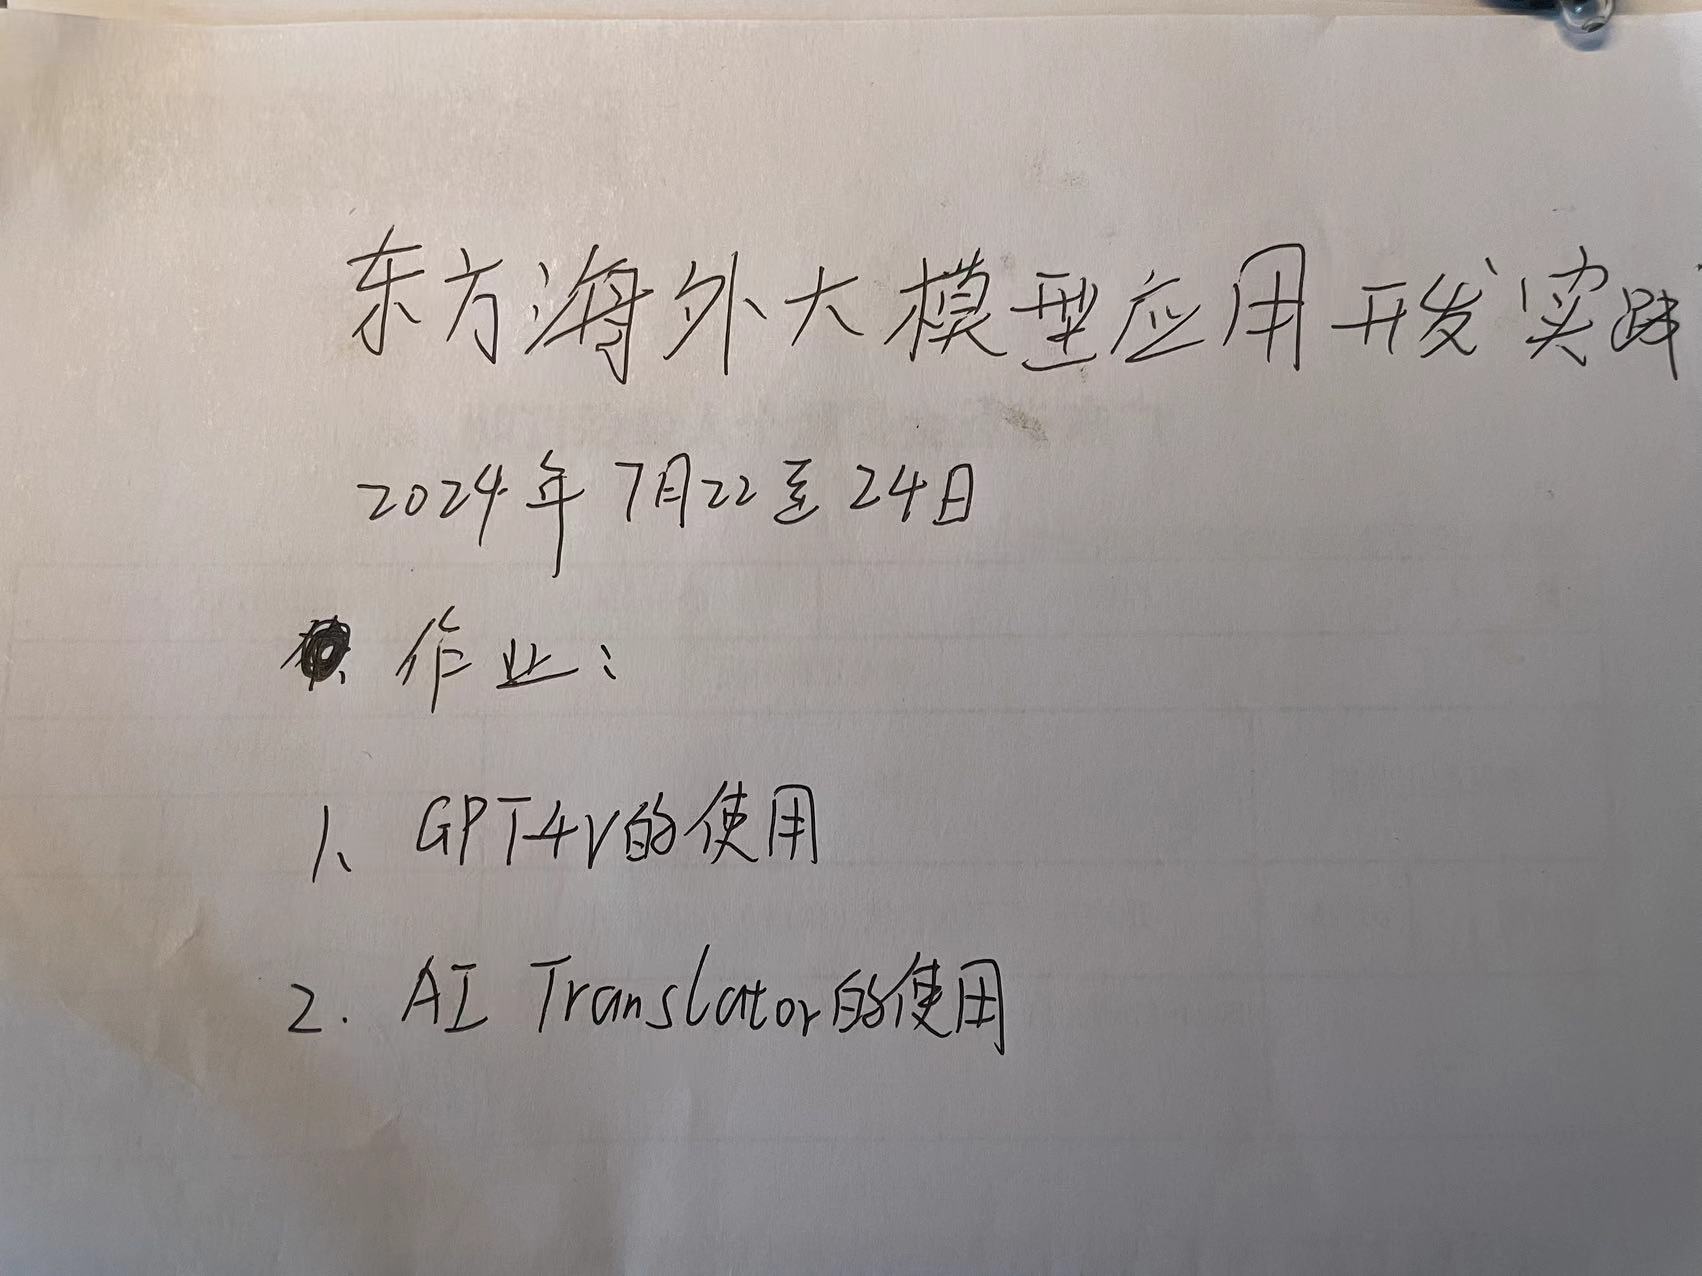 东方海外大模型应用开发实践
2024年7月22至24日
作业：
1、GPT-4V的使用
2. AI Translator的使用